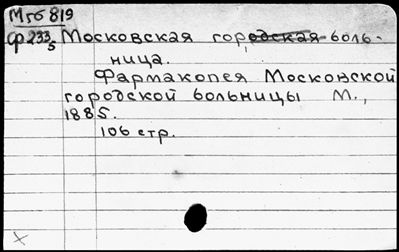 М 56 819
ф 233/5 Московская городская боль-
ница.
Фармакопея Московской
городской больницы М.,
1885.
106 стр.